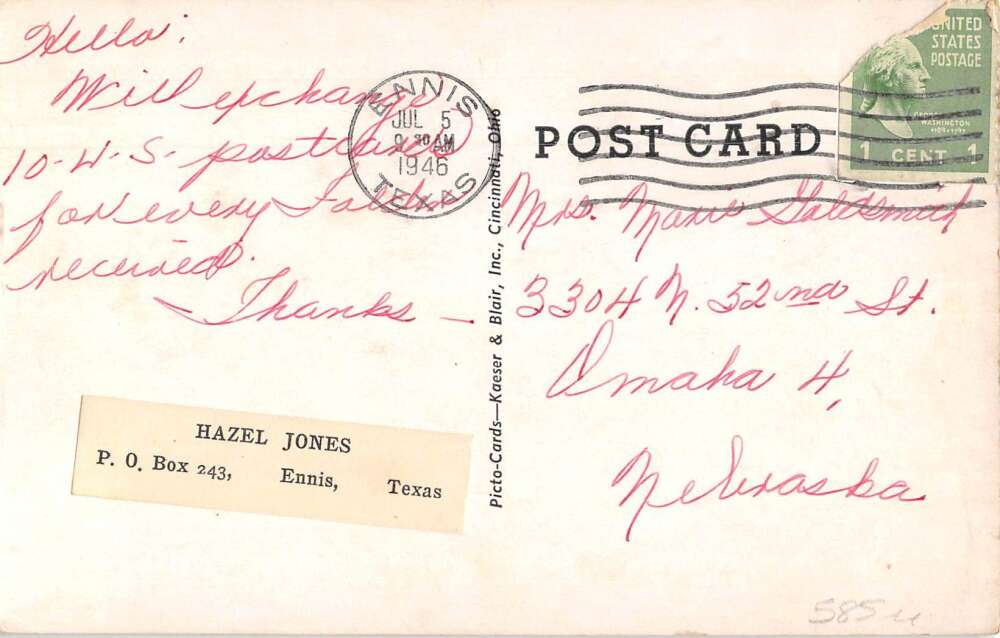 Hello:
Will exchange
10-W-S-postcards
for every Folder
received.
- Thanks -
HAZEL JONES
P. O. Box 243, Ennis, Texas
ENNIS
JUL 5
9 30 AM
1946
TEXAS
Picto-Cards—Kaeser & Blair, Inc., Cincinnati, Ohio
POST CARD
UNITED
STATES
POSTAGE
WASHINGTON
1 CENT 1
Mrs. Marie Goldsmith
3304 N. 52nd St.
Omaha 4,
Nebraska
585